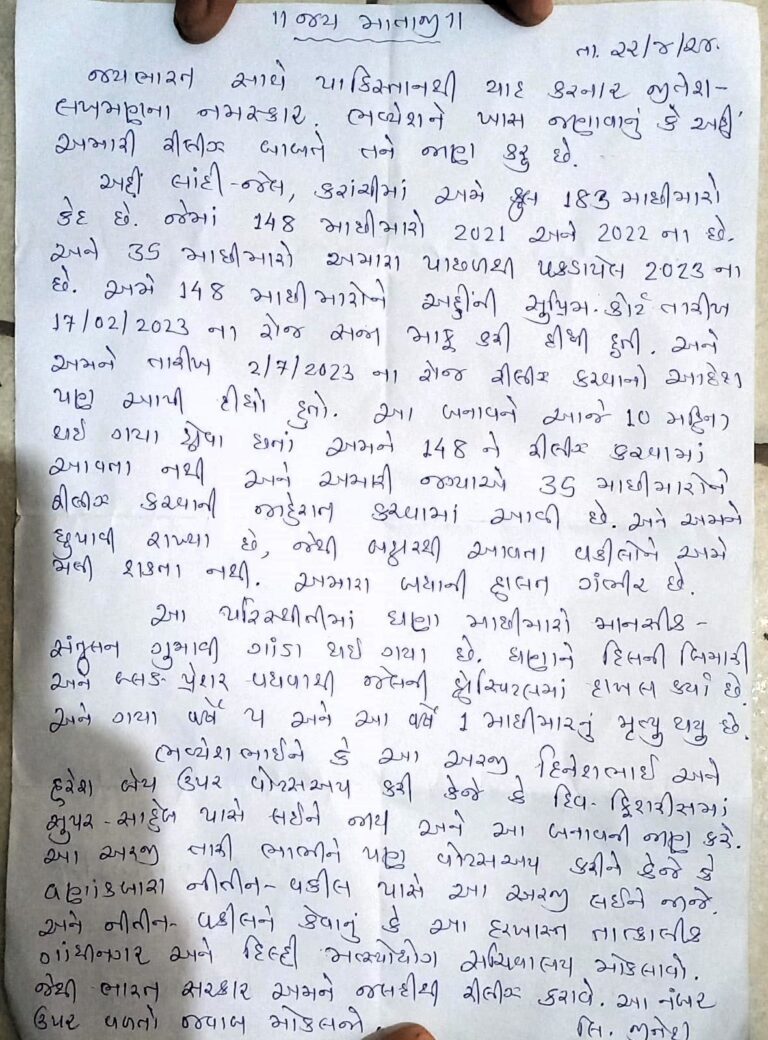 ॥ જય માતાજી ॥
તા. ૨૨/૪/૨૪.
જયભારત સાથે પાકિસ્તાનથી યાદ કરનાર જીતેશ-
લખમણના નમસ્કાર. ભવ્યેશને ખાસ જણાવાનું કે અહીં
અમારી રીલીઝ બાબતે તને જાણ કરૂ છે.
અહીં લાંદી-જેલ, કરાંચીમાં અમે કુલ 183 માછીમારો
કેદ છે. જેમાં 148 માછીમારો 2021 અને 2022 ના છે.
અને 35 માછીમારો અમારા પાછળથી પકડાયેલ 2023 ના
છે. અમે 148 માછીમારોને અહીંની સુપ્રિમ-કોર્ટ તારીખ
17/02/2023 ના રોજ સજા માફ કરી દીધી હતી. અને
અમને તારીખ 2/7/2023 ના રોજ રીલીઝ કરવાનો આદેશ
પણ આપી દીધો હતો. આ બનાવને આજે 10 મહિના
થઈ ગયા હોવા છતાં અમને 148 ને રીલીઝ કરવામાં
આવતા નથી અને અમારી જગ્યાએ 35 માછીમારોને
રીલીઝ કરવાની જાહેરાત કરવામાં આવી છે. અને અમને
છુપાવી રાખ્યા છે, જેથી બહારથી આવતા વકીલોને અમે
મળી શકતા નથી. અમારા બધાની હાલત ગંભીર છે.
આ પરિસ્થીતીમાં ઘણા માછીમારો માનસીક-
સંતુલન ગુમાવી ગાંડા થઈ ગયા છે. ઘણાને દિલની બિમારી
અને બ્લડ-પ્રેશર વધવાથી જેલની હોસ્પિટલમાં દાખલ કર્યા છે.
અને ગયા વર્ષે ૫ અને આ વર્ષે 1 માછીમારનું મૃત્યુ થયુ છે.
ભવ્યેશભાઈને કે આ અરજી દિનેશભાઈ અને
હરેશ બેય ઉપર વોટ્સઅપ કરી કેજે કે દિવ-ફિશરીસમાં
સુપર-સાહેબ પાસે લઈને જાય અને આ બનાવની જાણ કરે.
આ અરજી તારી ભાભીને પણ વોટ્સઅપ કરીને કેજે કે
વણાંકબારા નીતીન-વકીલ પાસે આ અરજી લઈને જાજે.
અને નીતીન-વકીલને કેવાનું કે આ દરખાસ્ત તાત્કાલીક
ગાંધીનગર અને દિલ્હી મત્સ્યોદ્યોગ સચિવાલય મોકલાવો.
જેથી ભારત સરકાર અમને જલદીથી રીલીઝ કરાવે. આ નંબર
ઉપર વળતો જવાબ મોકલજો. લિ. જીતેશ